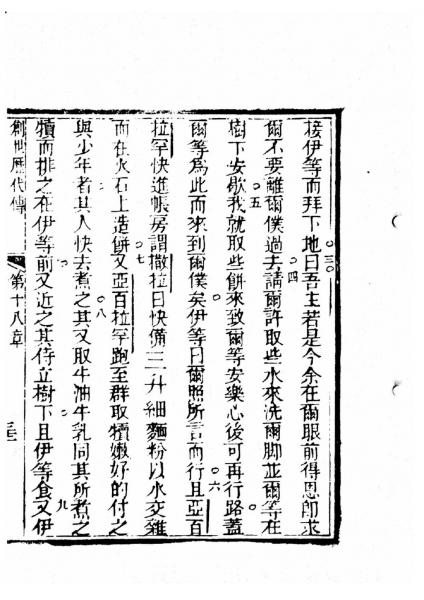 接伊等而拜下地曰吾主若是今余在爾眼前得恩卽求
爾不要離爾僕過去請爾許取些水來洗爾脚並爾等在
樹下安歇我就取些餅來致爾等安樂心後可再行路蓋
爾等爲此而來到爾僕矣伊等曰爾照所言而行且亞百
拉罕快進帳房謂撒拉曰快備三升細麵粉以水交雜
而在火石上造餅又亞百拉罕跑至群取犢嫩好的付之
與少年者其人快去煮之其又取牛油牛乳同其所煮之
犢而排之在伊等前又近之其侍立樹下且伊等食又伊
創世歷代傳 第十八章